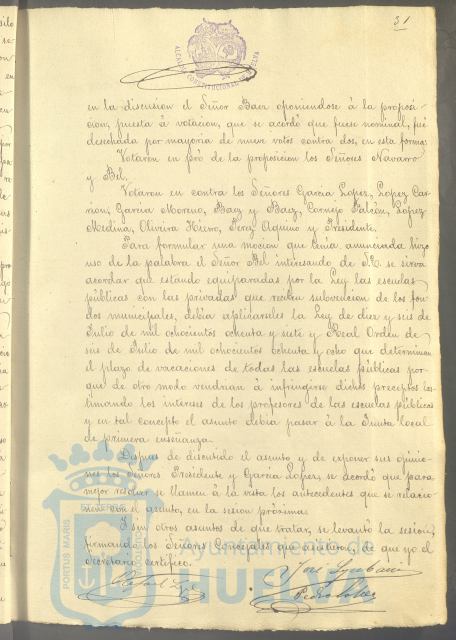 31
ALCALDIA CONSTITUCIONAL HUELVA
en la discusion el Señor Baez oponiendose á la proposi-
cion, puesta á votacion, que se acordó que fuese nominal, fué
desechada por mayoria de nueve votos contra dos, en esta forma:
Votaron en pró de la proposicion los Señores Navarro
y Bel.
Votaron en contra los Señores Garcia Lopez, Lopez Car-
rion, Garcia Moreno, Baez y Baez, Cornejo Falcón, Lopez
Medina, Oliveira Hierro, Perez Aquino y Presidente.
Para formular una mocion que tenia anunciada hizo
uso de la palabra el Señor Bel interesando de S.E. se sirva
acordar que estando equiparadas por la Ley las escuelas
públicas con las privadas que reciben subvencion de los fon-
dos municipales, debia aplicarseles la Ley de diez y seis de
Julio de mil ochocientos ochenta y siete y Real Orden de
seis de Julio de mil ochocientos ochenta y ocho que determinan
el plazo de vacaciones de todas las escuelas públicas por-
que de otro modo vendrian á infringirse dichos preceptos las-
timando los intereses de los profesores de las escuelas públicas
y en tal concepto el asunto debia pasar á la Junta local
de primera enseñanza.
Despues de discutido el asunto y de exponer sus opinio-
nes los Señores Presidente y Garcia Lopez, se acordó que para
mejor resolver se llamen á la vista los antecedentes que se relacio-
nen con el asunto, en la sesion próxima.
Y sin otros asuntos de que tratar, se levantó la sesion,
firmando los Señores Concejales que asistieron, de que yo el
Secretario certifico.
PORTUS MARIS
Ayuntamiento de
HUELVA